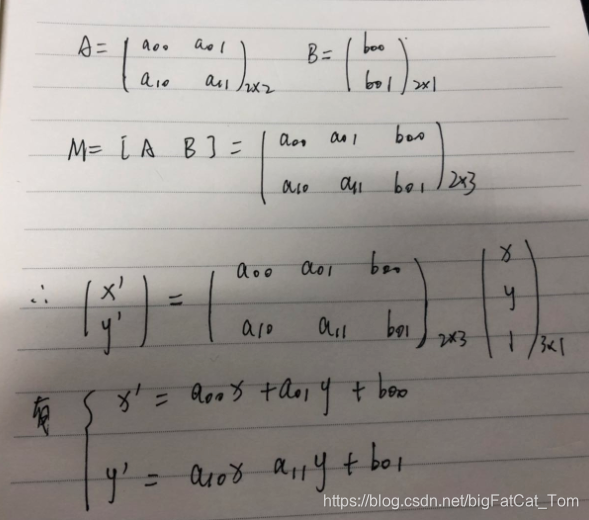 A = ( a00 a01 B = ( b00
a10 a11 )2×2 b01 )2×1
M = [ A B ] = ( a00 a01 b00
a10 a11 b01 )2×3
∴ ( x' = ( a00 a01 b00 ( x
y' ) y
a10 a11 b01 )2×3 1 )3×1
有 { x' = a00x + a01y + b00
y' = a10x a11y + b01
https://blog.csdn.net/bigFatCat_Tom